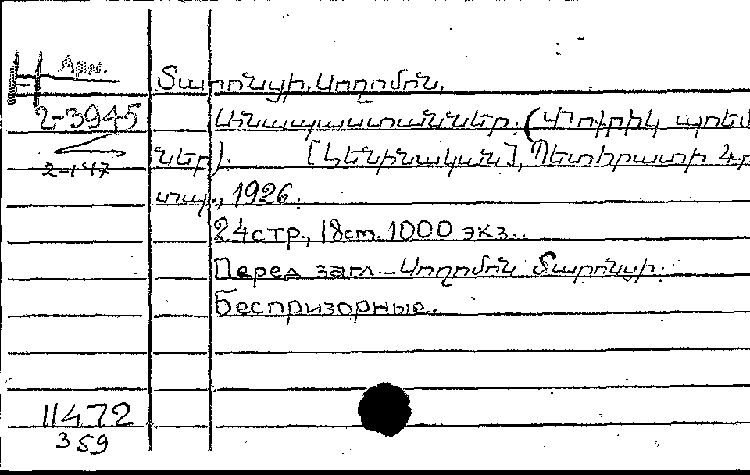 Арм.
Տարոնցի, Սողոմոն.
2-3945
Անապաստաններ. (Փոքրիկ պոեմ
ներ). [Լենինական], Պետհրատի Լ-ր
տպ., 1926.
2-147
24стр., 18см. 1000 экз..
Перед загл. - Սողոմոն Տարոնցի.
Беспризорные.
11472
359